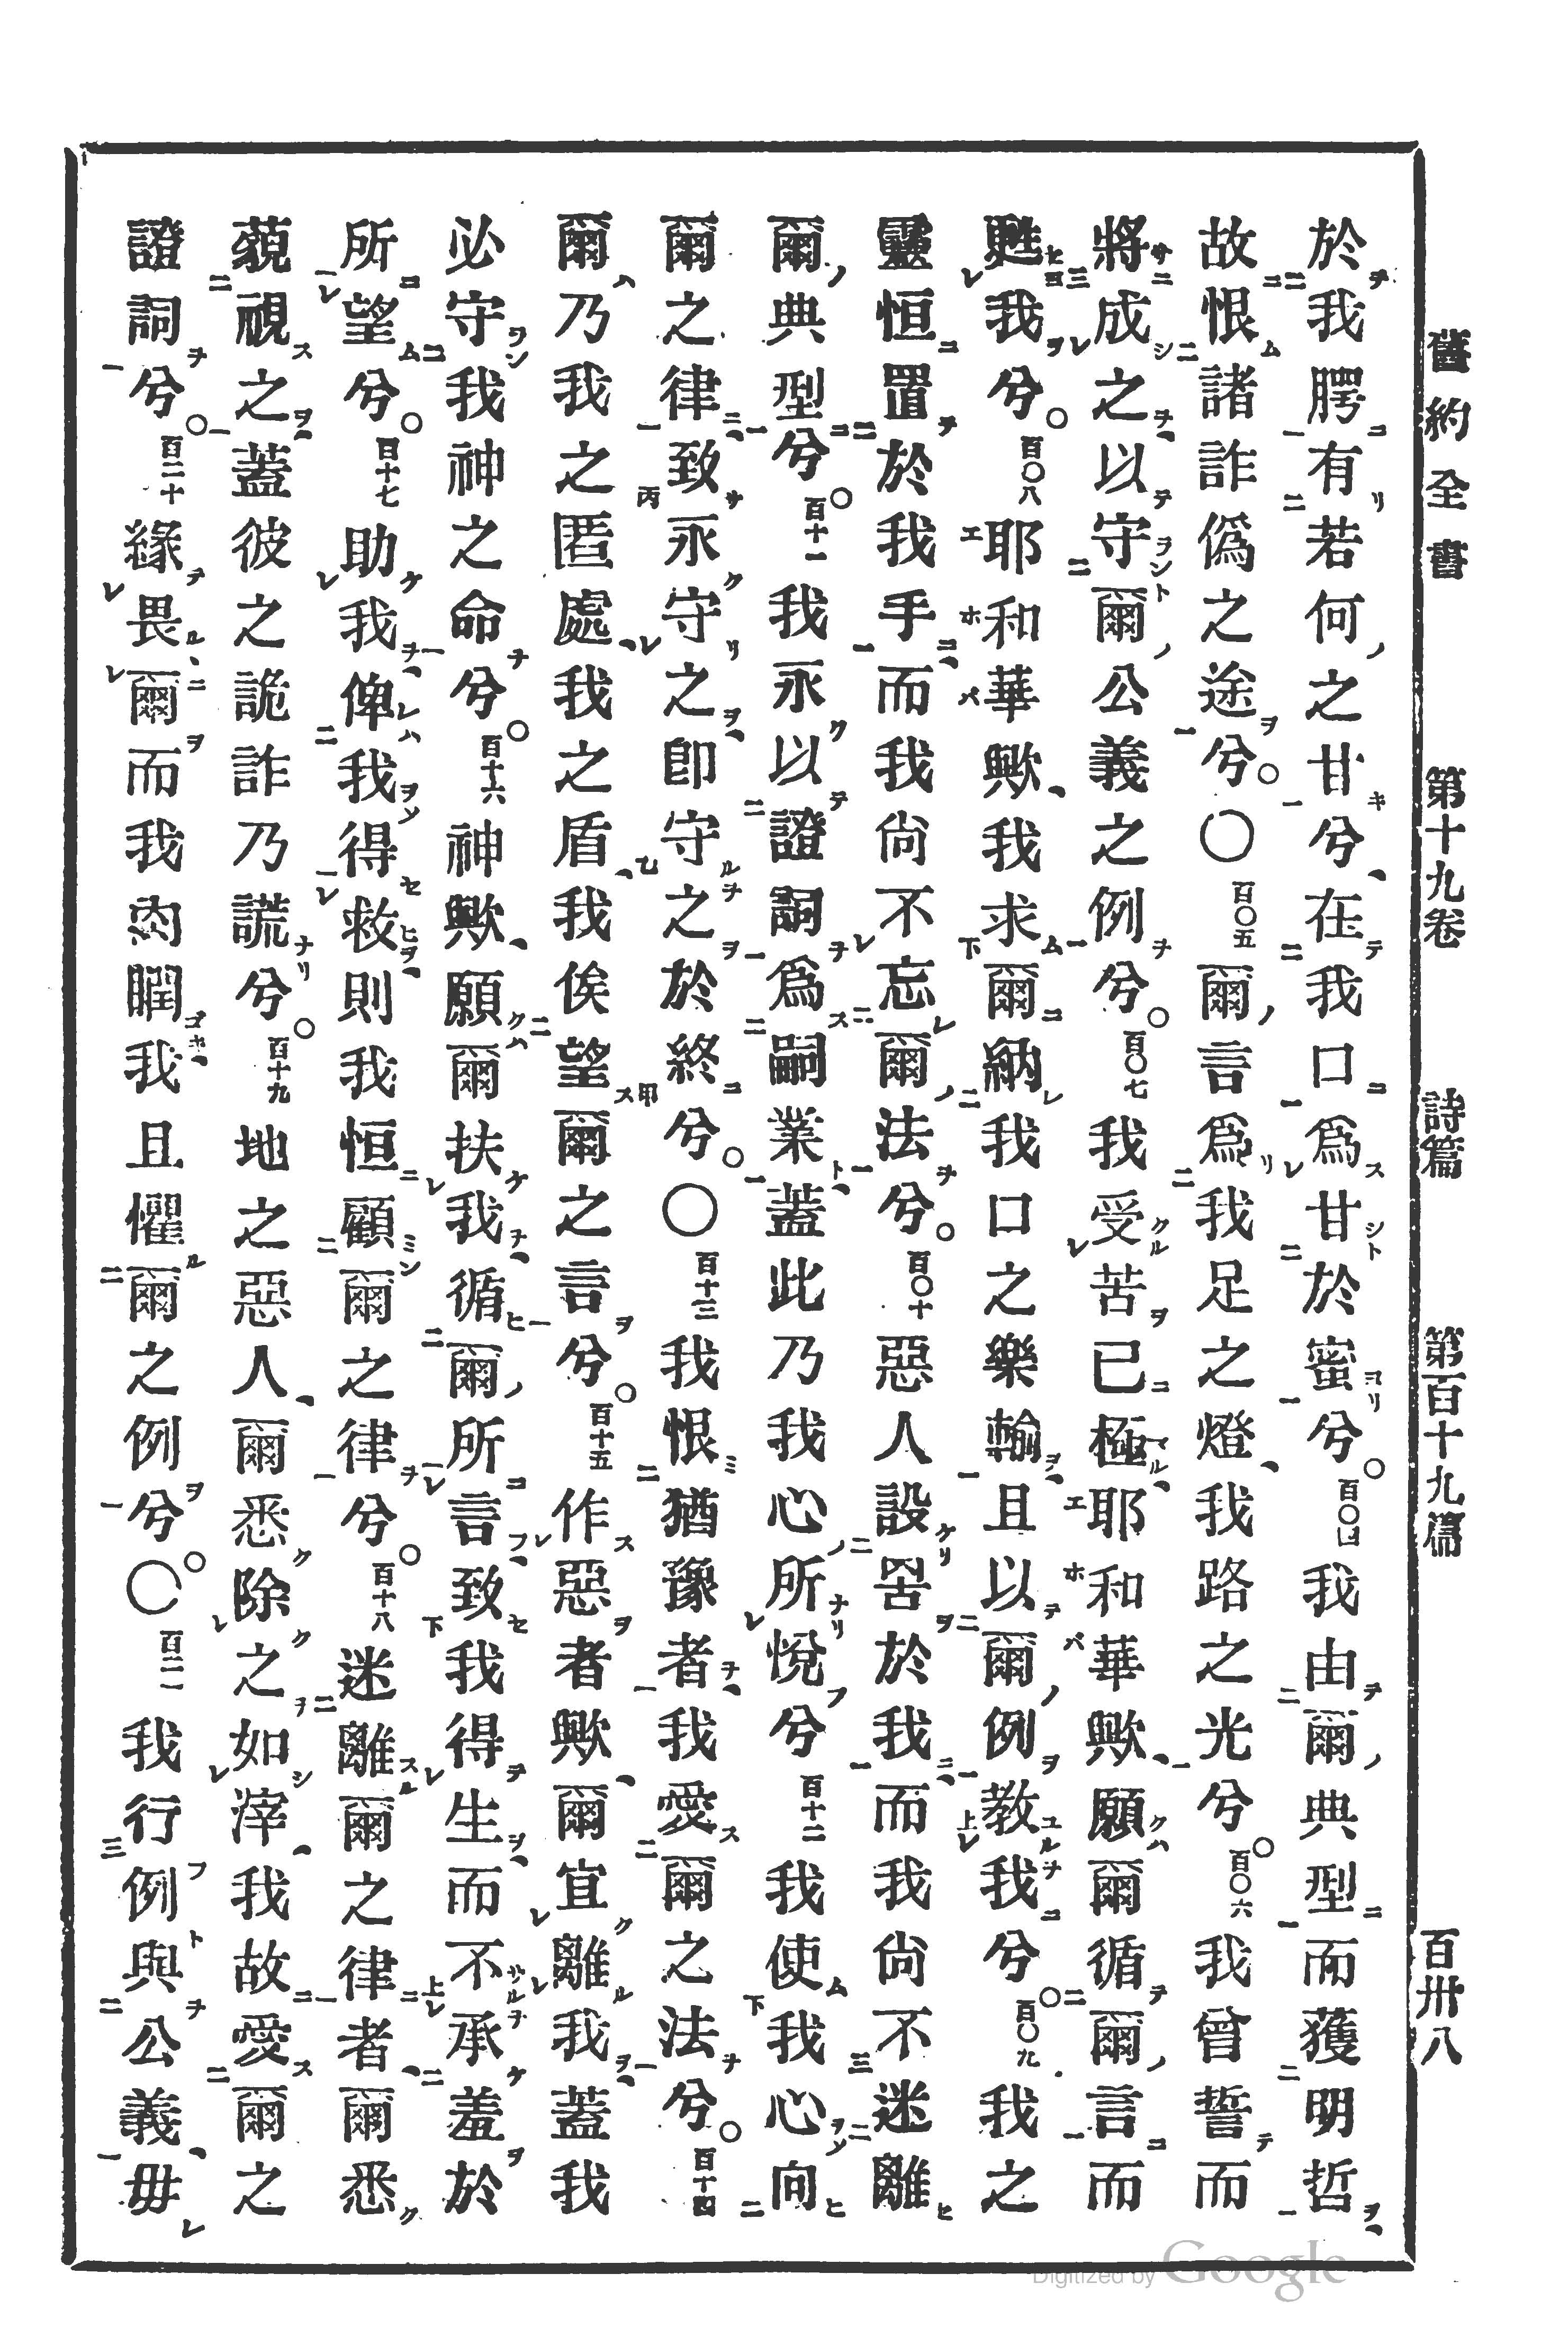 舊約全書 第十九卷 詩篇 第百十九篇 百卅八
於我腭有若何之甘兮、在我口爲甘於蜜兮。百〇四我由爾典型而獲明哲、
故恨諸詐僞之途兮。〇百〇五爾言爲我足之燈、我路之光兮。百〇六我曾誓而
將成之、以守爾公義之例兮。百〇七我受苦已極、耶和華歟、願爾循爾言而
甦我兮。百〇八耶和華歟、我求爾納我口之樂輸、且以爾例教我兮。百〇九我之
靈恒置於我手、而我尙不忘爾法兮。百〇十惡人設罟於我、而我尙不迷離
爾典型兮。百十一我永以證詞爲嗣業、蓋此乃我心所悅兮百十二我使我心向
爾之律、致永守之、卽守之於終兮。〇百十三我恨猶豫者、我愛爾之法兮。百十四
爾乃我之匿處、我之盾、我俟望爾之言兮。百十五作惡者歟、爾宜離我、蓋我
必守我神之命兮。百十六神歟、願爾扶我、循爾所言、致我得生、而不承羞於
所望兮。百十七助我、俾我得救、則我恒顧爾之律兮。百十八迷離爾之律者、爾悉
藐視之、蓋彼之詭詐乃謊兮。百十九地之惡人、爾悉除之如滓、我故愛爾之
證詞兮。百二十緣畏爾而我肉瞤、我且懼爾之例兮。〇百二一我行例與公義、毋
Digitized by Google